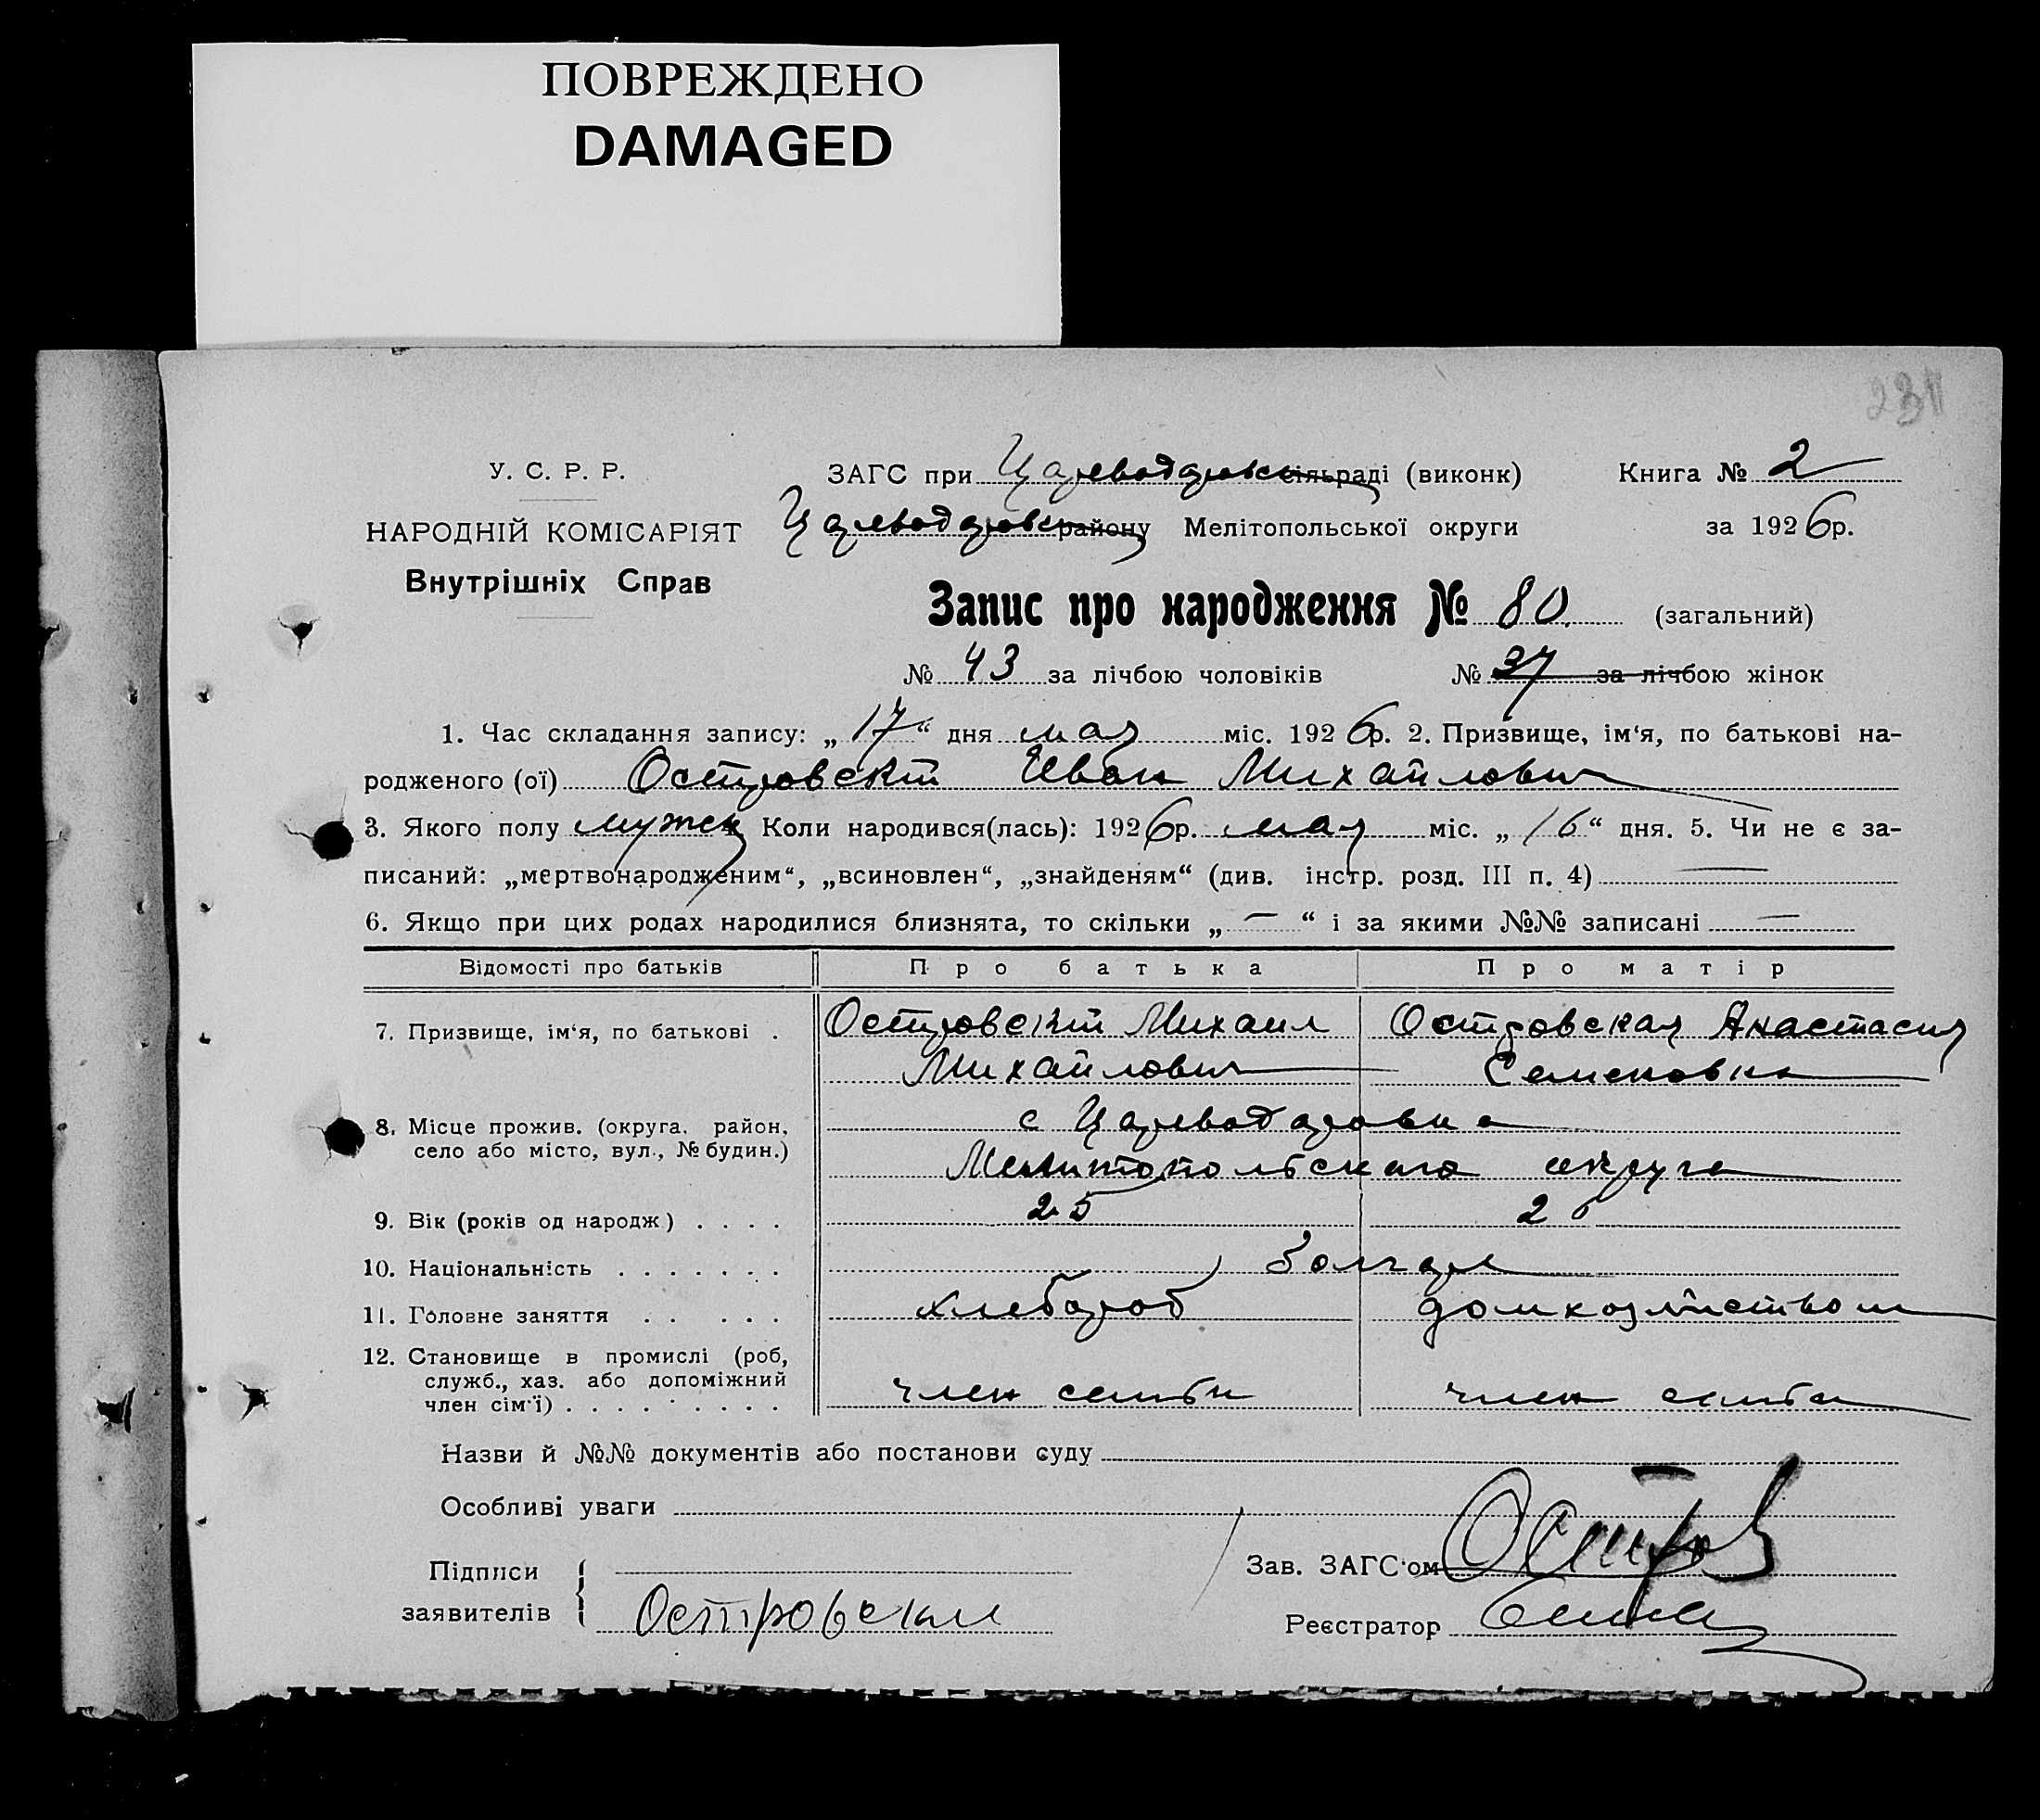 ПОВРЕЖДЕНО
DAMAGED
У. С. Р. Р.
ЗАГС при Цареводаровск сільраді (виконк)
Книга № 2
НАРОДНІЙ КОМІСАРІЯТ
Цареводаровск району Мелітопольської округи
за 1926р.
Внутрішніх Справ
Запис про народження № 80. (загальний)
№ 43 за лічбою чоловіків № 37 за лічбою жінок
1. Час складання запису: „17“ дня мая міс. 1926р. 2. Призвище, ім‘я, по батькові на-
родженого (ої) Островскій Иван Михайлович
3. Якого полу мужск Коли народився(лась): 1926р. мая міс. „16“ дня. 5. Чи не є за-
писаний: „мертвонародженим“, „всиновлен“, „знайденям“ (див. інстр. розд. III п. 4) —
6. Якщо при цих родах народилися близнята, то скільки „—“ і за якими №№ записані —
Відомості про батьків Про батька Про матір
7. Призвище, ім‘я, по батькові . Островскій Михаил Островская Анастасия
Михайлович Семеновна
8. Місце прожив. (округа, район, с Цареводаровка
село або місто, вул., № будин.) Мелитопольского округа
9. Вік (років од народж) . . . . 25 26
10. Національність . . . . . . . болгаре
11. Головне заняття . . . . . хлебороб домхозяйством
12. Становище в промислі (роб,
служб., хаз. або допоміжний
член сім‘ї) . . . . . . . . . член семьи член семьи
Назви й №№ документів або постанови суду
Особливі уваги
Підписи
Зав. ЗАГС‘ом Остров
заявителів Островский
Реєстратор